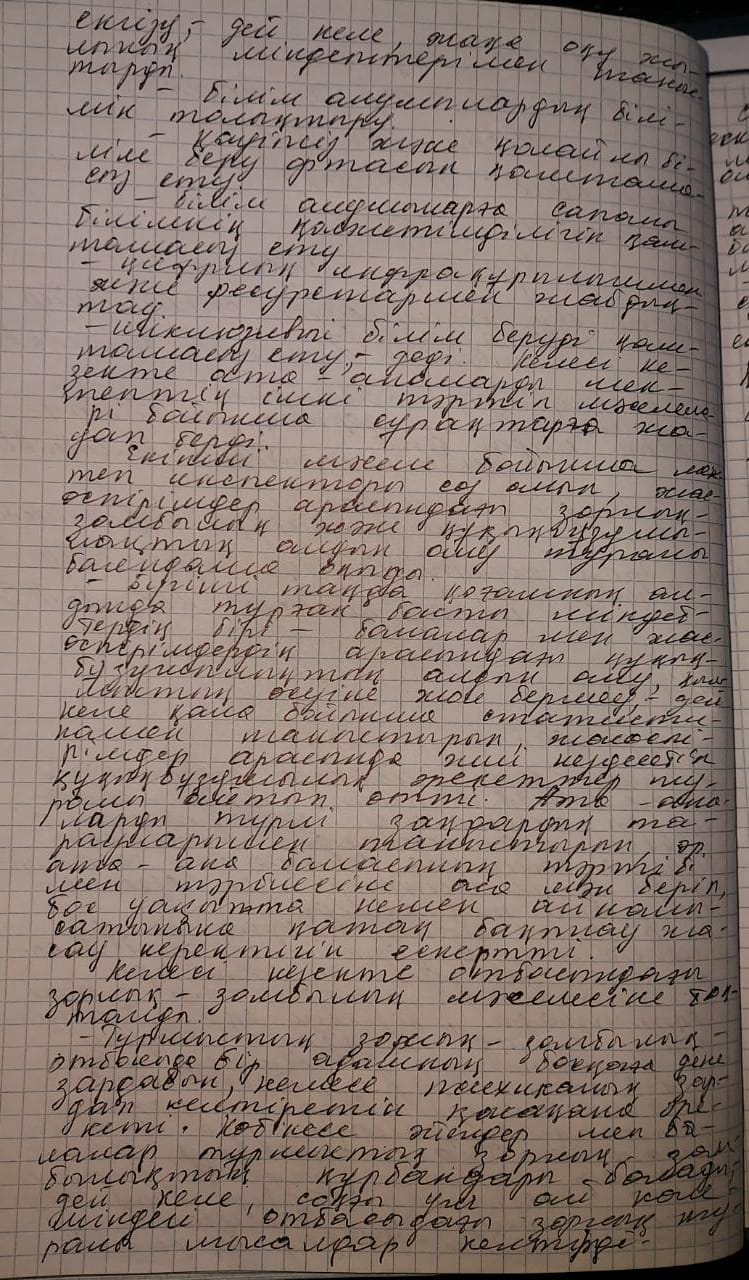 енгізу, - дей келе, жаңа оқу жы-
лының міндеттерімен таныс-
тырды.
- білім алушылардың білі-
мін толықтыру.
- Қауіпсіз және қолайлы бі-
лім беру ортасын қамтама-
сыз ету;
- білім алушыларға сапалы
білімнің қолжетімділігін қам-
тамасыз ету
- цифрлық инфрақұрылыммен
және ресурстармен жабдық-
тау.
- инклюзивті білім беруді қам-
тамасыз ету, - деді. Келесі ке-
зекте ата - аналарды мек-
тептің ішкі тәртіп мәселеле-
рі бойынша сұрақтарға жа-
уап берді.
Екінші мәселе бойынша мек-
теп инспекторы сөз алып, жас-
өспірімдер арасындағы зорлық-
зомбылық және құқықбұзушы-
лықтың алдын алу туралы
баяндама оқыды.
- Бүгінгі таңда қоғамның ал-
дында тұрған басты міндет-
тердің бірі - балалар мен жас-
өспірімдердің арасындағы құқық-
бұзушылықтың алдын алу, қыл-
мыстың өсуіне жол бермеу, - дей
келе қала бойынша статисти-
камен таныстырып, жасөспі-
рімдер арасында жиі кездесетін
құқықбұзушылық әрекеттер ту-
ралы айтып өтті. Ата - ана-
ларды түрлі заңдардың та-
рауларымен таныстырып, әр
ата - ана баласының тәртібі
мен тәрбиесіне аса мән беріп,
бос уақытта немен айналы-
сатынына қатаң бақылау жа-
сау керектігін ескертті.
Келесі кезекте отбасындағы
зорлық - зомбылық мәселесіне тоқ-
талды.
- Тұрмыстық зорлық - зомбылық -
отбасыда бір адамның басқаға дене
зардабын, немесе психикалық зар-
дап келтіретін қасақана әре-
кеті. Көбінесе әйелдер мен ба-
лалар тұрмыстық зорлық - зом-
былықтың құрбандары болады,
дей келе, соңғы уақ
отбасыдағы зорлық ту-
ралы мысалдар келтірді.